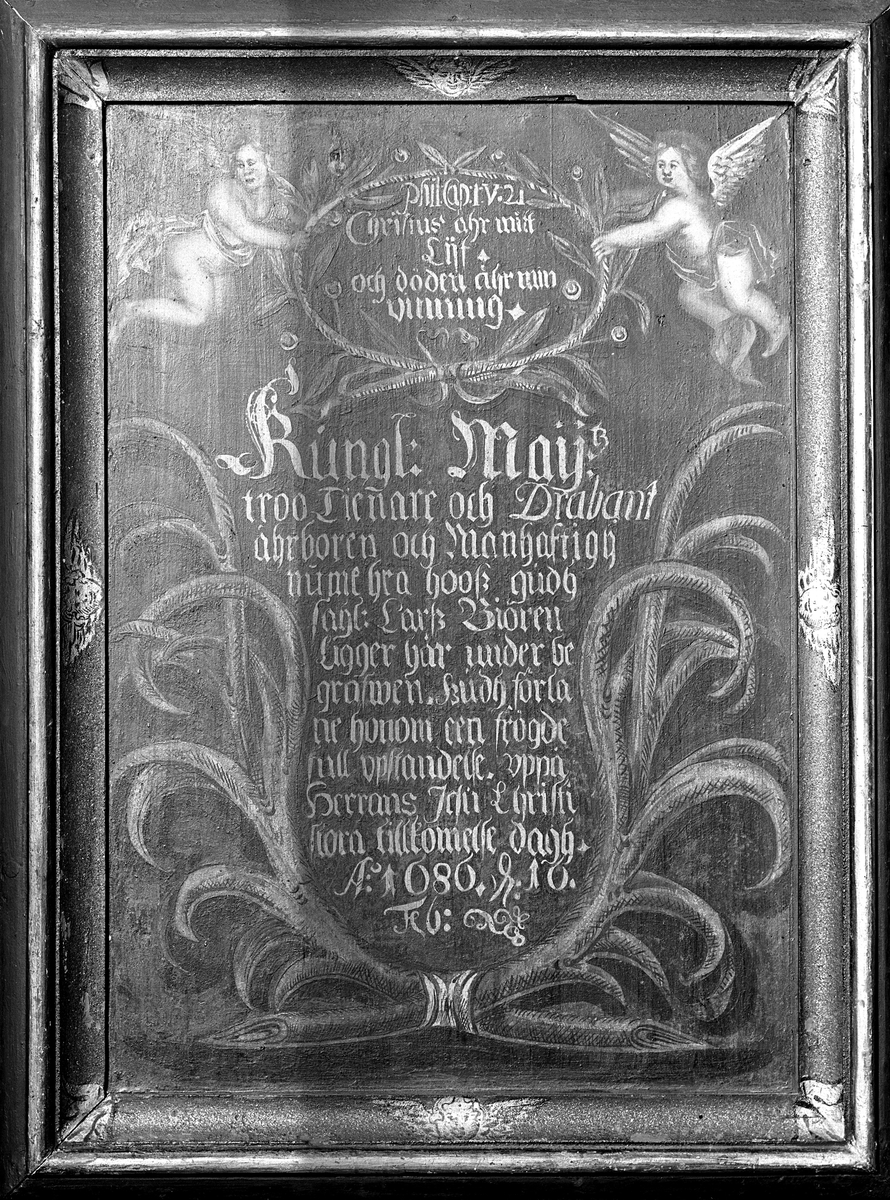 Phil Cap: 1 V. 21
Christus ähr mitt
Lijf
och döden ähr min
vinning
Kungl: Maÿ:tz
troo Tieñare och Drabant
ährboren och Manhafftigh
numehra hooß gudh
sahl: Larß Biören
ligger här under be
grafwen. Gudh förlä
ne honom een frögde
full vpståndelse. vppå
Herrans Jesu Christi
stora tillkomelse dagh.
A:o 1686. d: 16.
Feb: